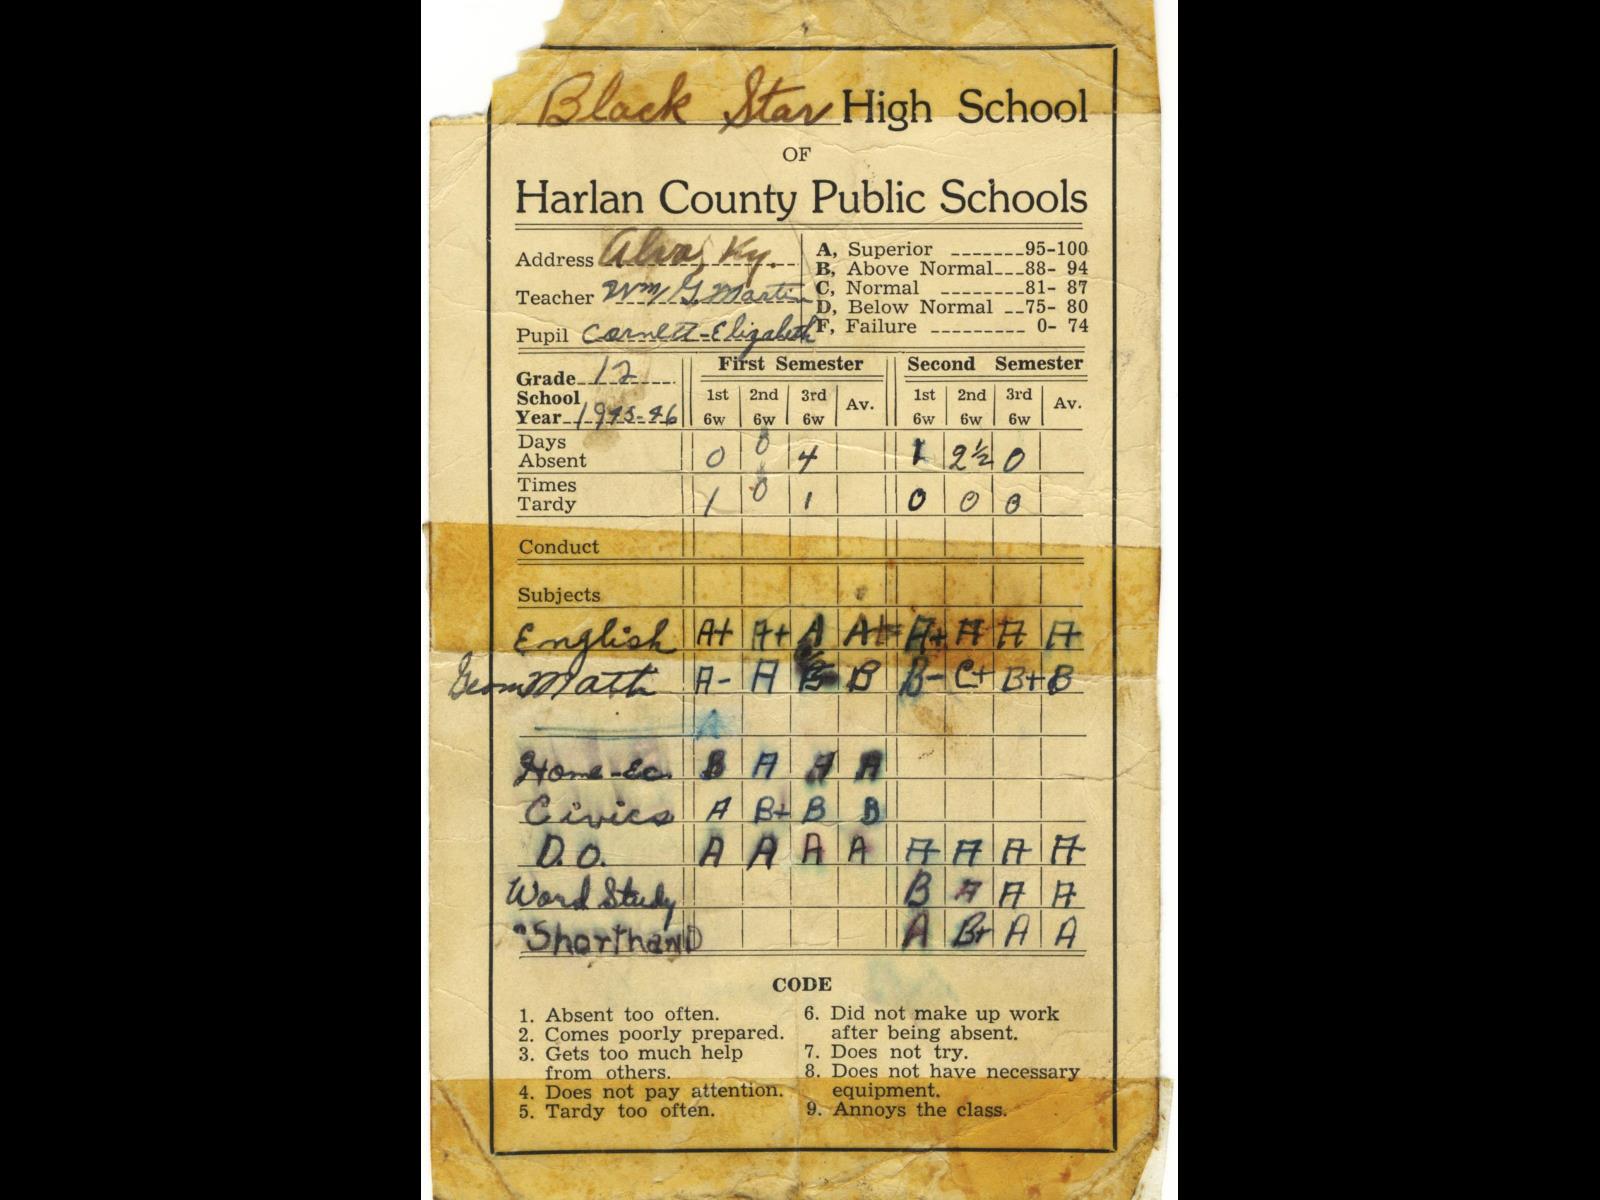 Black Star High School
OF
Harlan County Public Schools
Address Alva, Ky.
Teacher Wm G. Martin
Pupil Cornett-Elizabeth
A, Superior -------95-100
B, Above Normal---88- 94
C, Normal --------81- 87
D, Below Normal --75- 80
F, Failure --------- 0- 74
Grade 12
School
Year 1945-46
First Semester Second Semester
1st 2nd 3rd Av. 1st 2nd 3rd Av.
6w 6w 6w 6w 6w 6w
Days
Absent 0 0 4 1 2½ 0
Times
Tardy 1 0 1 0 0 0
Conduct
Subjects
English A+ A+ A A+ A+ A A A
Geom Math A- A B B B- C+ B+ B
A
Home-Ec. B A A A
Civics A B+ B B
D.O. A A A A A A A A
Word Study B A A A
"Shorthand A B+ A A
CODE
1. Absent too often.
2. Comes poorly prepared.
3. Gets too much help
from others.
4. Does not pay attention.
5. Tardy too often.
6. Did not make up work
after being absent.
7. Does not try.
8. Does not have necessary
equipment.
9. Annoys the class.